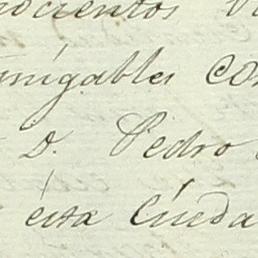 nocientos
amigables con
D. Pedro
esta Ciuda